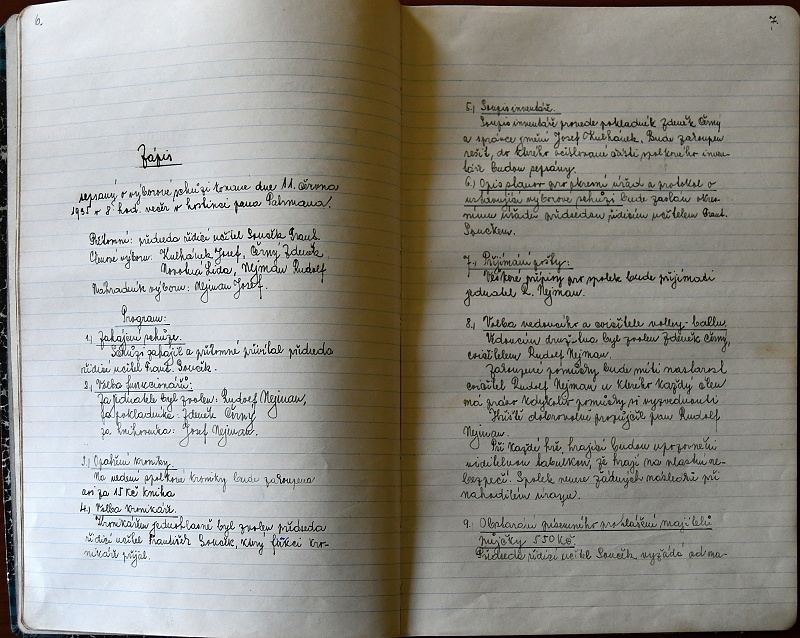 6.
Zápis
sepsaný o výborové schůzi konané dne 11. června
1935 v 8 hod. večer v hostinci pana
Přítomni: předseda řídící učitel Souček Frant.
Členové výboru: Kulhánek Josef, Černý Zdeněk,
Lída, Nejman Rudolf
Náhradník výboru: Nejman Josef.
Program:
1.) Zahájení schůze.
Schůzi zahájil a přítomné přivítal předseda
řídící učitel Frant. Souček.
2.) Volba funkcionářů:
Za jednatele byl zvolen: Rudolf Nejman,
za pokladníka: Zdeněk Černý
za knihovníka: Josef Nejman.
3.) Opatření kroniky.
Na vedení spolkové kroniky bude zakoupena
asi za 15 Kč kniha
4.) Volba kronikáře.
Kronikářem jednohlasně byl zvolen předseda
řídící učitel František Souček, který funkci kro-
nikáře přijal.
7.
5.) Soupis inventáře.
Soupis inventáře provede pokladník Zdeněk Černý
a správce jmění Josef Kulhánek. Bude zakoupen
sešit, do kterého očíslované části spolkového inven-
táře budou zapsány.
6.) Opis stanov pro okresní úřad a protokol o
ustavující výborové schůzi bude zaslán okre-
snímu úřadu předsedou řídícím učitelem Frant.
Součkem.
7.) Přijímání pošty:
Veškeré přípisy pro spolek bude přijímati
jednatel R. Nejman.
8.) Volba vedoucího a cvičitele volley-ballu.
Vedoucím družstva byl zvolen Zdeněk Černý,
cvičitelem Rudolf Nejman.
Zakoupené pomůcky bude míti na starost
cvičitel Rudolf Nejman u kterého každý člen
má právo kdykoliv pomůcky si vyzvednouti
Hřiště dobrovolně propůjčil pan Rudolf
Nejman.
Při každé hře, hrající budou upozorněni
viditelnou tabulkou, že hrají na vlastní ne-
bezpečí. Spolek nenese žádných následků při
nahodilém úrazu.
9.) Obstarání písemného prohlášení majitelů
půjčky 550 Kč.
Předseda řídící učitel Souček vyžádá od ma-